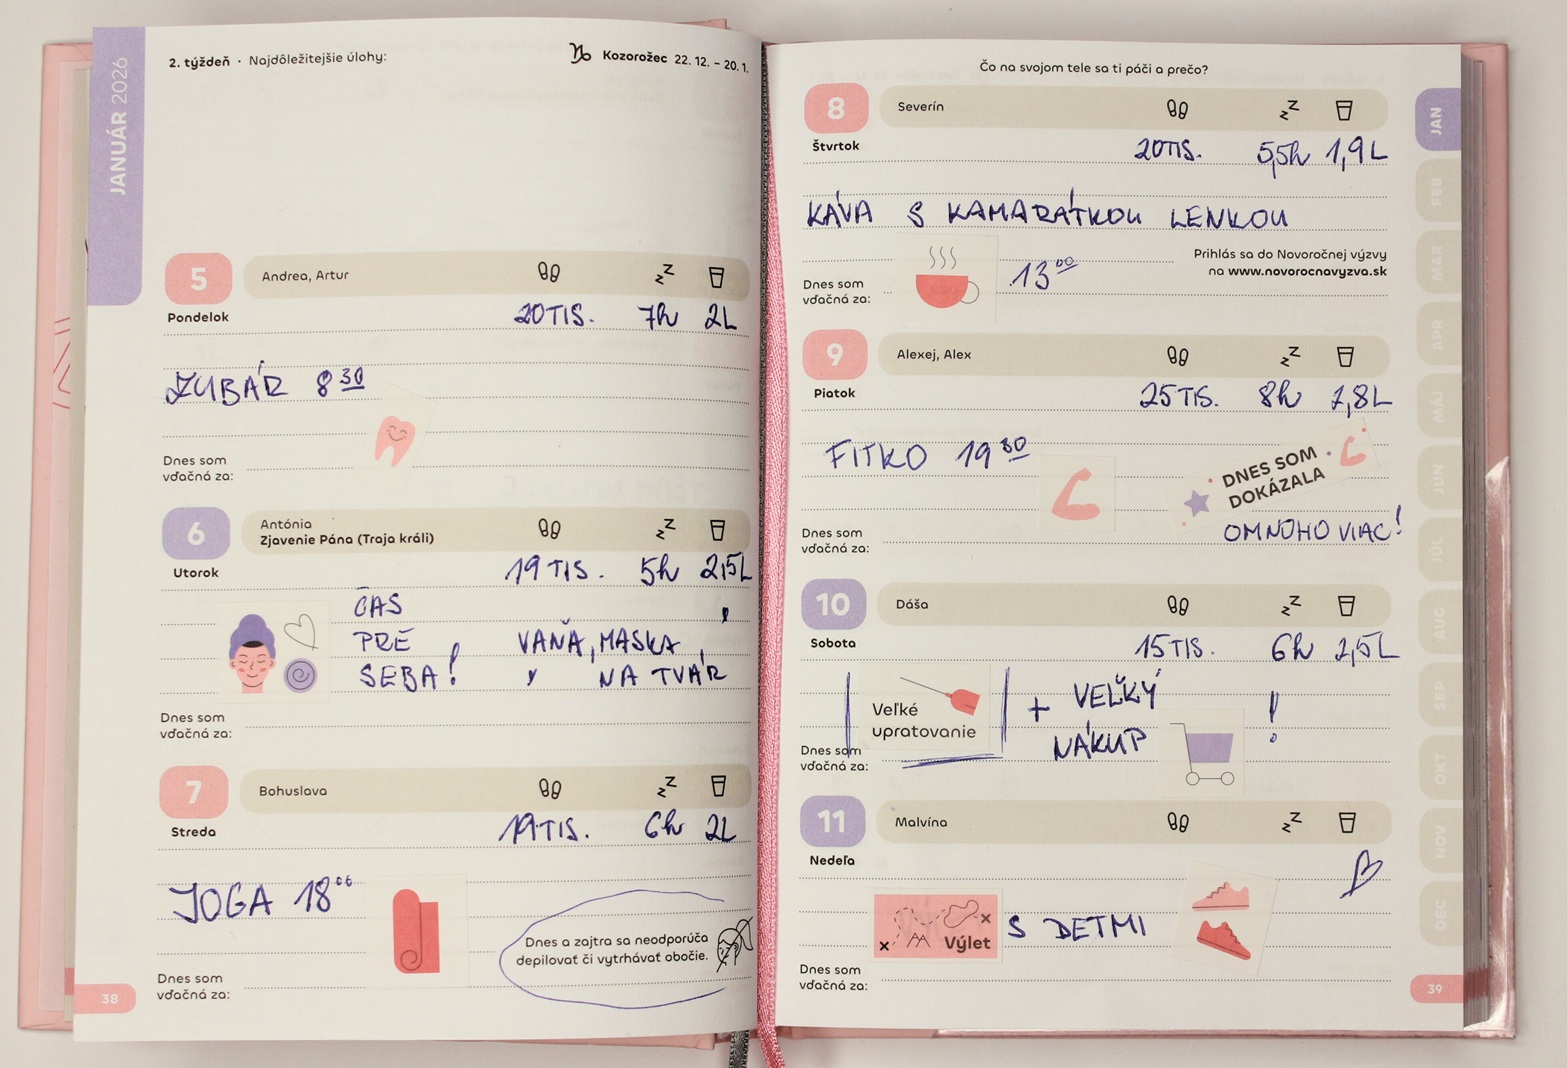 JANUÁR 2026
2. týždeň · Najdôležitejšie úlohy:
Kozorožec 22. 12. – 20. 1.
5
Andrea, Artur
Pondelok
20 TIS. 7h 2L
ZUBÁR 8 30
Dnes som
vďačná za:
6
Antónia
Zjavenie Pána (Traja králi)
Utorok
19 TIS. 5h 2,5L
ČAS
PRE
SEBA!
VAŇA, MASKA
NA TVÁR
Dnes som
vďačná za:
7
Bohuslava
Streda
19 TIS. 6h 2L
JOGA 18 00
Dnes a zajtra sa neodporúča
depilovať či vytrhávať obočie.
Dnes som
vďačná za:
38
Čo na svojom tele sa ti páči a prečo?
8
Severín
Štvrtok
20TIS. 5,5h 1,9L
KÁVA S KAMARÁTKOU LENKOU
13 00
Prihlás sa do Novoročnej výzvy
na www.novorocnavyzva.sk
Dnes som
vďačná za:
9
Alexej, Alex
Piatok
25 TIS. 8h 1,8L
FITKO 19 30
DNES SOM
DOKÁZALA
OMNOHO VIAC!
Dnes som
vďačná za:
10
Dáša
Sobota
15 TIS. 6h 2,5L
Veľké
upratovanie
+ VEĽKÝ
NÁKUP !
Dnes som
vďačná za:
11
Malvína
Nedeľa
Výlet
S DETMI
Dnes som
vďačná za:
39
JAN
FEB
MAR
APR
MÁJ
JÚN
JÚL
AUG
SEP
OKT
NOV
DEC